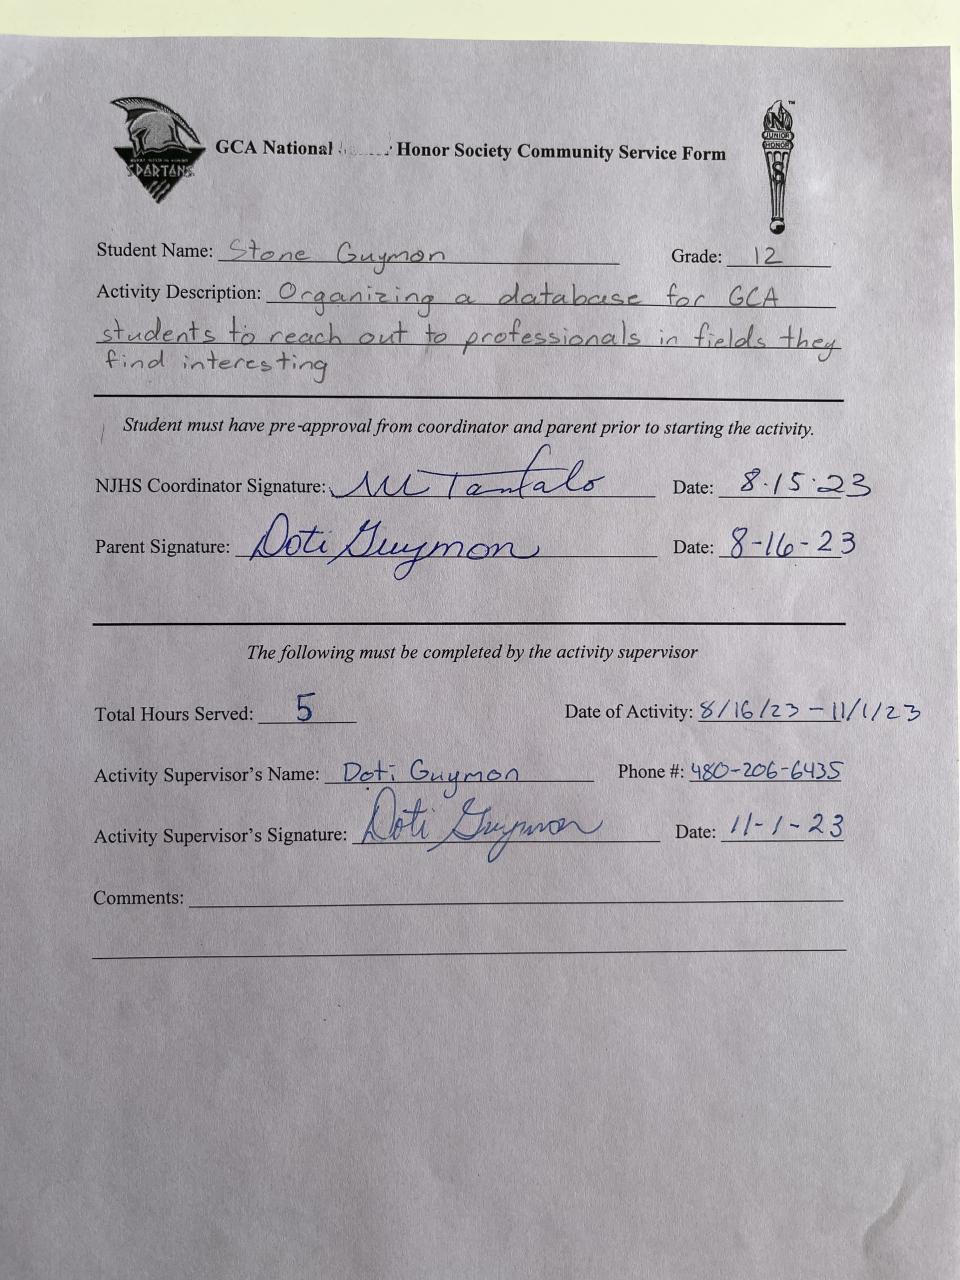 SPARTANS
N
JUNIOR
HONOR
S
™
GCA National Honor Society Community Service Form
Student Name: Stone Guymon Grade: 12
Activity Description: Organizing a database for GCA
students to reach out to professionals in fields they
find interesting
Student must have pre-approval from coordinator and parent prior to starting the activity.
NJHS Coordinator Signature: M Tantalo Date: 8-15-23
Parent Signature: Doti Guymon Date: 8-16-23
The following must be completed by the activity supervisor
Total Hours Served: 5 Date of Activity: 8/16/23 - 11/1/23
Activity Supervisor's Name: Doti Guymon Phone #: 480-206-6435
Activity Supervisor's Signature: Doti Guymon Date: 11-1-23
Comments: